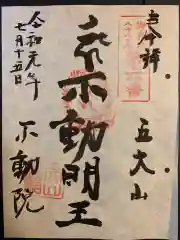 奉拝
五大山
不動明王
令和元年
七月十五日
不動院